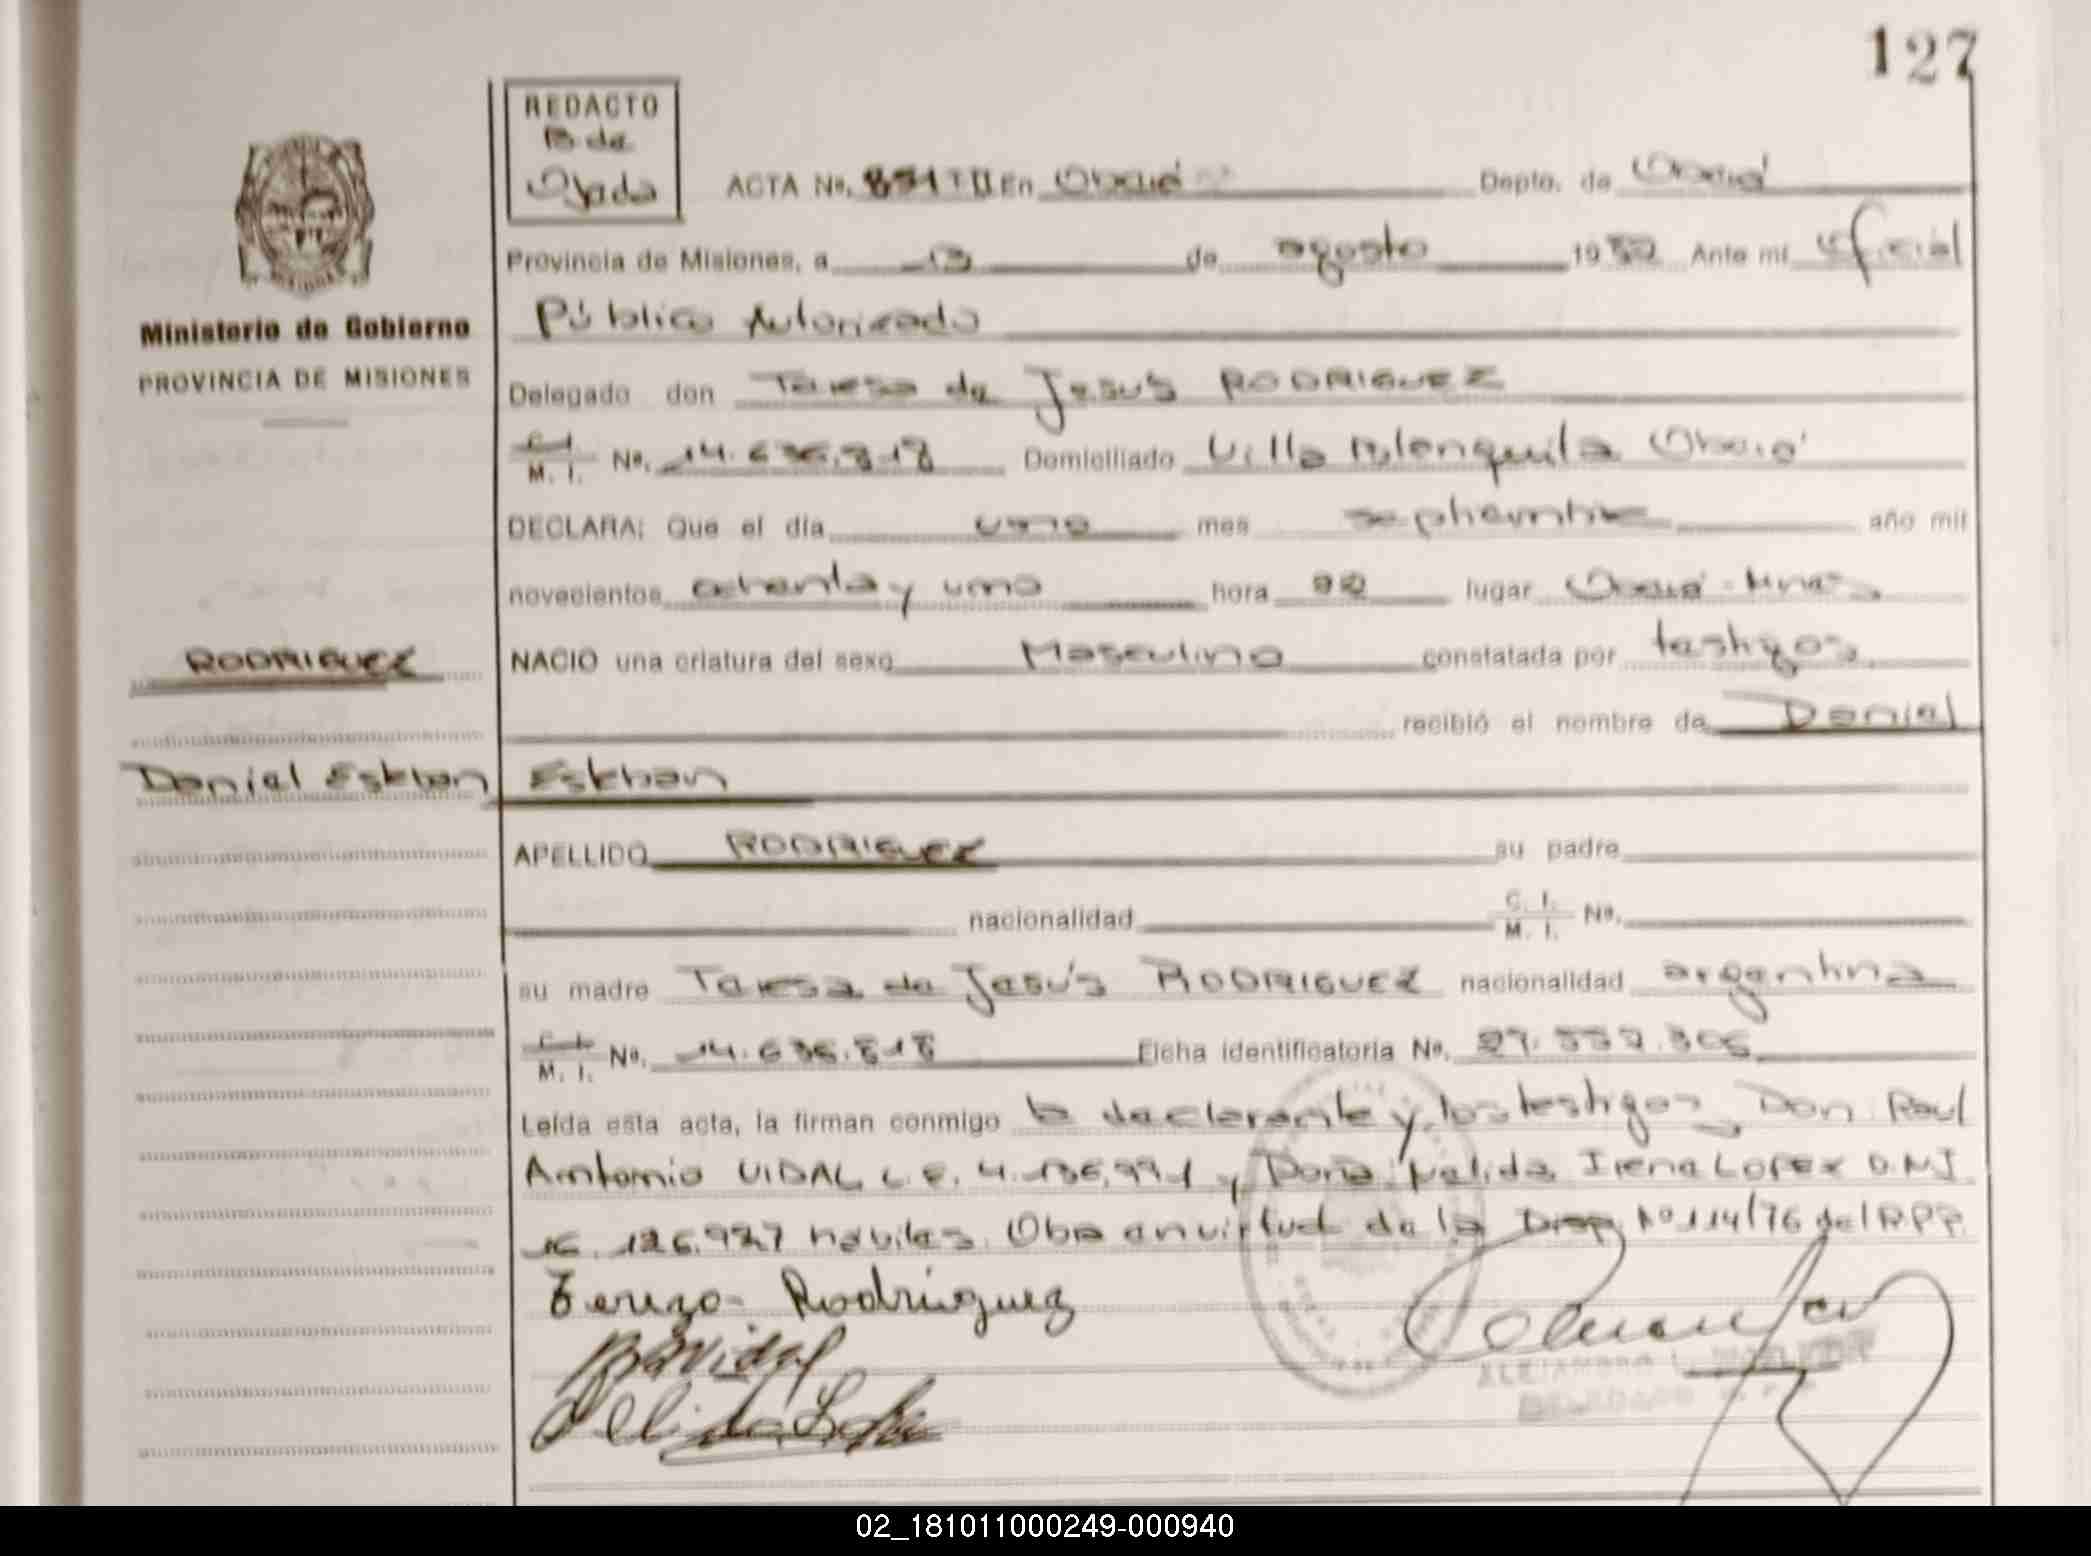 127
REDACTO
B de
Ojeda
ACTA Nº. 891 T II En Oberá Depto. de Oberá
Provincia de Misiones, a 13 de agosto 1982 Ante mí Oficial
Público Autorizado
Ministerio de Gobierno
PROVINCIA DE MISIONES
Delegado don Teresa de Jesús RODRIGUEZ
C. I. M. I. Nº. 14.636.818 Domiciliado Villa Blanquita Oberá
DECLARA: Que el día uno mes septiembre año mil
novecientos ochenta y uno hora lugar Oberá - Mnes
RODRIGUEZ
NACIO una criatura del sexo Masculino constatada por testigos
recibió el nombre de Daniel
Daniel Esteban
Esteban
APELLIDO RODRIGUEZ su padre
nacionalidad C. I. M. I. Nº.
su madre Teresa de Jesús RODRIGUEZ nacionalidad argentina
C. I. M. I. Nº. 14.636.818 Ficha identificatoria Nº.
Leída esta acta, la firman conmigo la declarante y los testigos Don Raul
Antonio VIDAL L.E. y Doña Nelida Irene LOPEZ D.N.I.
16.126.927 haviles. Obs en virtud de la Disp. Nº 114/76 del R.P.P.
Tereza Rodriguez
RAVidal
Nelida Lopez
ALEJANDRO
DELEGADO
02_181011000249-000940